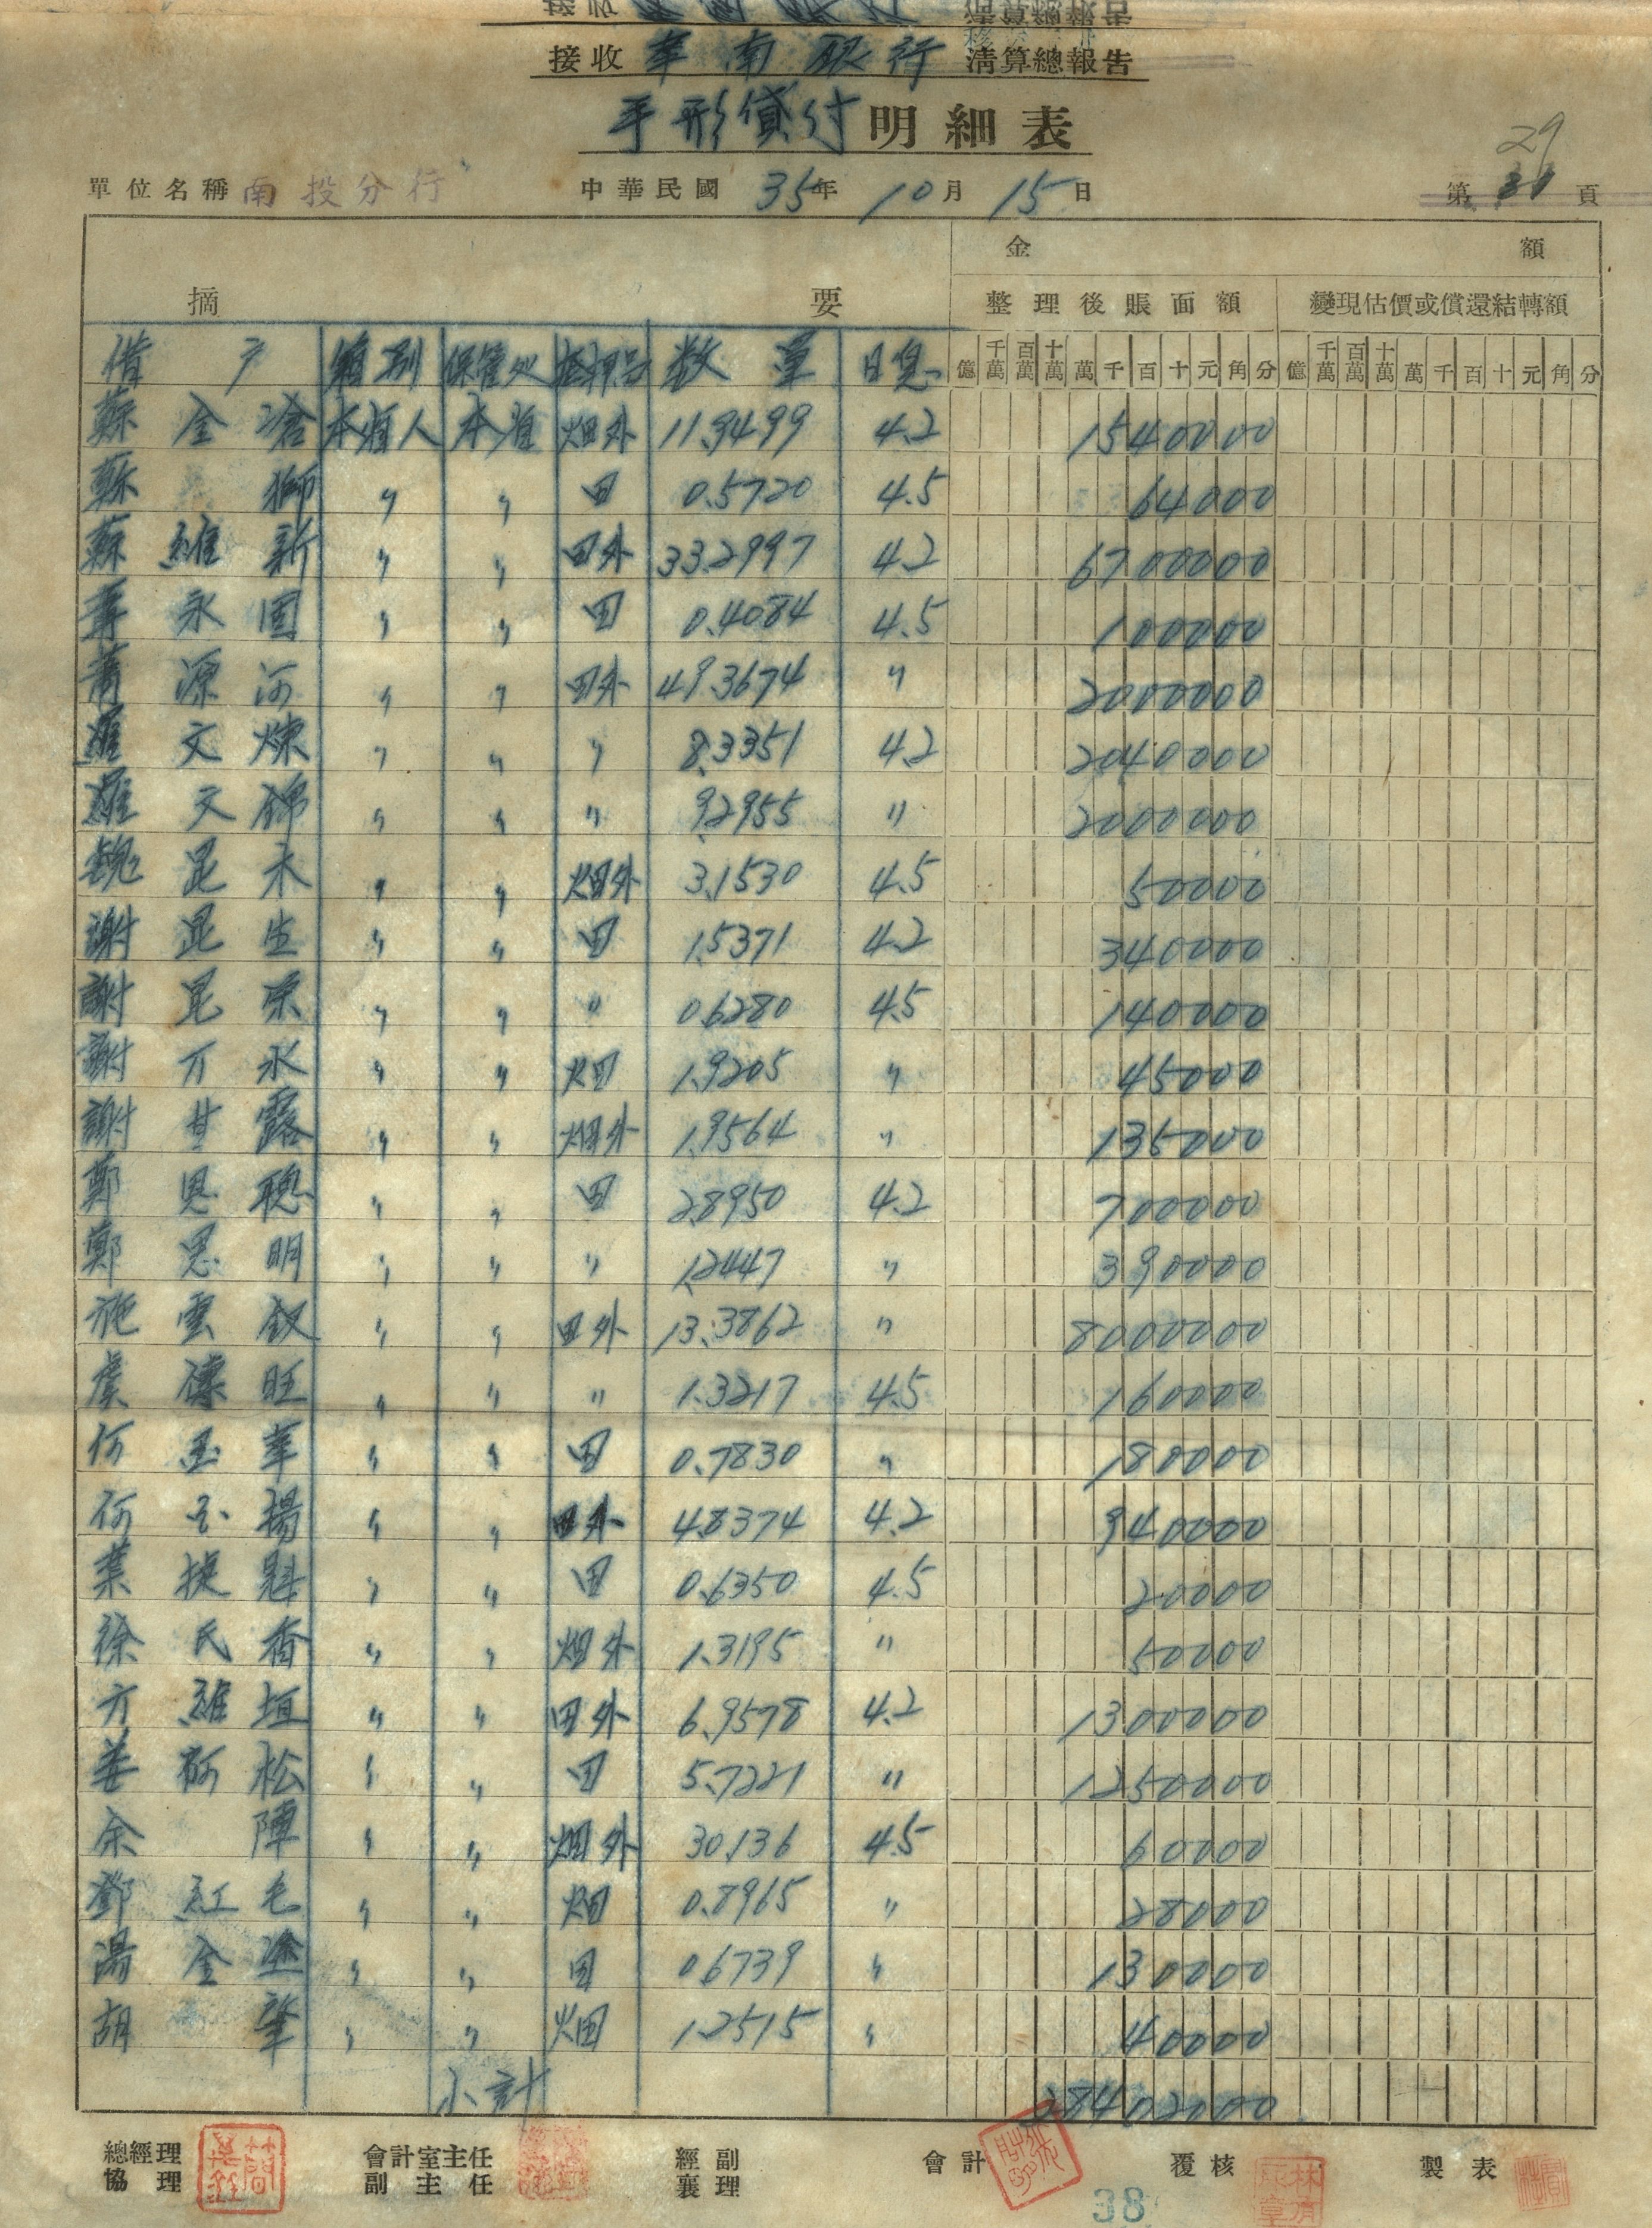 接收 華南銀行 清算總報告
手形貸付明細表
29
單位名稱 南投分行 中華民國 35年 10月 15日 第 頁
金 額
摘 要 整理後賬面額 變現估價或償還結轉額
借戶 類別 保管処 抵押品 数量 日息 億 千萬 百萬 十萬 萬 千 百 十 元 角 分 億 千萬 百萬 十萬 萬 千 百 十 元 角 分
蘇金滄 本省人 本省 畑外 11.9499 4.2 1540000
蘇獅 〃 〃 田 0.5720 4.5 64000
蘇維新 〃 〃 田外 33.2997 4.2 6700000
永固 〃 〃 田 0.4084 4.5 100000
蕭源河 〃 〃 田外 49.3674 〃 2000000
羅文煉 〃 〃 〃 8.3351 4.2 2040000
羅文錦 〃 〃 〃 9.2955 〃 2000000
魏昆木 〃 〃 畑外 3.1530 4.5 50000
謝昆生 〃 〃 田 1.5371 4.2 340000
謝昆榮 〃 〃 〃 0.6280 4.5 140000
謝万永 〃 〃 畑 1.9205 〃 45000
謝甘露 〃 〃 畑外 1.9564 〃 135000
鄭思聰 〃 〃 田 2.8950 4.2 700000
鄭思明 〃 〃 〃 1.2447 〃 390000
施雲釵 〃 〃 田外 13.3862 〃 8000000
虞旺 〃 〃 〃 1.3217 4.5 160000
何玉華 〃 〃 田 0.7830 〃 180000
何揚 〃 〃 田外 4.8374 4.2 940000
葉捷魁 〃 〃 田 0.6350 4.5 20000
徐氏香 〃 〃 畑外 1.3195 〃 50000
方維垣 〃 〃 田外 6.9578 4.2 1300000
姜松 〃 〃 田 5.7221 〃 1250000
余陣 〃 〃 畑外 30.136 4.5 60000
鄧紅毛 〃 〃 畑 0.8965 〃 28000
湯金塗 〃 〃 田 0.6739 〃 130000
胡肇 〃 〃 畑 1.2515 〃 40000
小計 28402000
總經理 會計室主任 經副 會計 覆核 製表
協理 副主任 襄理
38